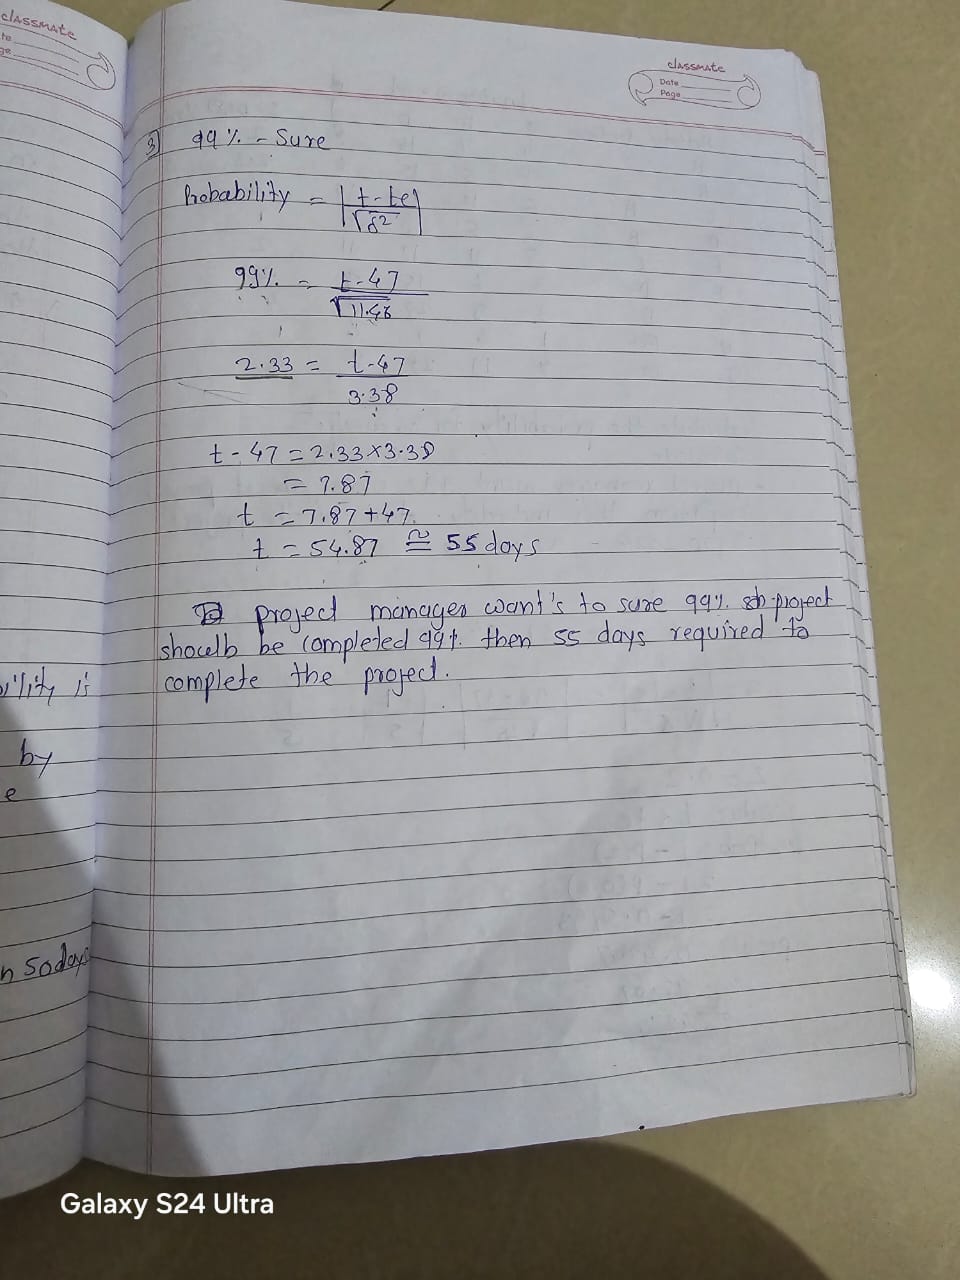 classmate
te
ge
classmate
Date
Page
3) 99% - Sure
Probability = |t - te|
√σ²
99% = t - 47
√11.46
2.33 = t - 47
3.38
t - 47 = 2.33 x 3.38
= 7.87
t = 7.87 + 47
t = 54.87 ≅ 55 days
project manager want's to sure 99% project
shoulb be completed 99% then 55 days required to
complete the project.
ility is
by
e
n 50 days
Galaxy S24 Ultra